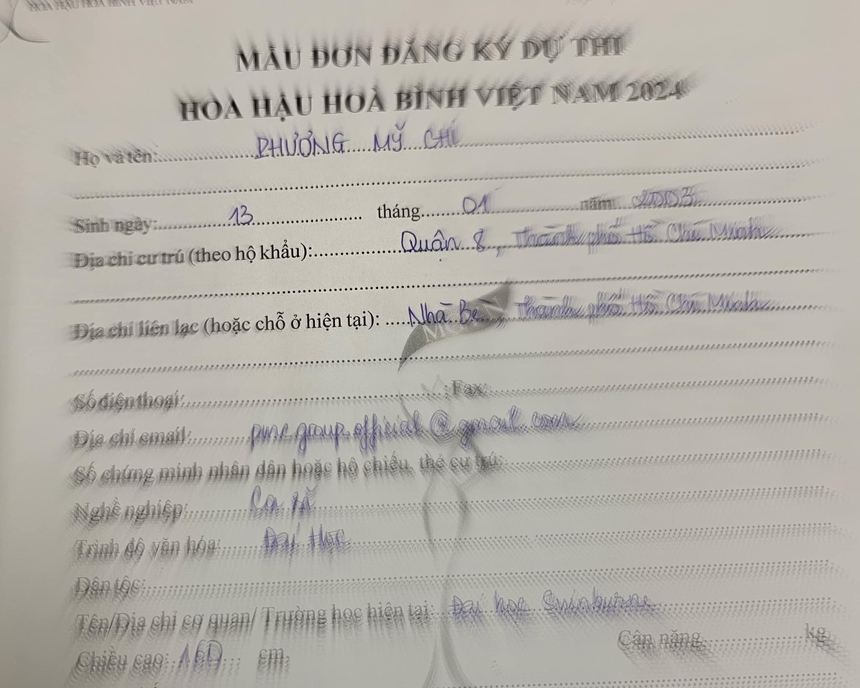 HOA HẬU HOÀ BÌNH VIỆT NAM
MẪU ĐƠN ĐĂNG KÝ DỰ THI
HOA HẬU HOÀ BÌNH VIỆT NAM 2024
Họ và tên: PHƯƠNG MỸ CHI
Sinh ngày: 13 tháng 01 năm 2003
Địa chỉ cư trú (theo hộ khẩu): Quận 8, Thành phố Hồ Chí Minh
Địa chỉ liên lạc (hoặc chỗ ở hiện tại): Nhà Bè, Thành phố Hồ Chí Minh
Số điện thoại: Fax:
Địa chỉ email: pmc.group.official@gmail.com
Số chứng minh nhân dân hoặc hộ chiếu, thẻ cư trú:
Nghề nghiệp: Ca sĩ
Trình độ văn hóa: Đại học
Dân tộc:
Tên/Địa chỉ cơ quan/ Trường học hiện tại: Đại học Swinburne
Cân nặng kg
Chiều cao: cm